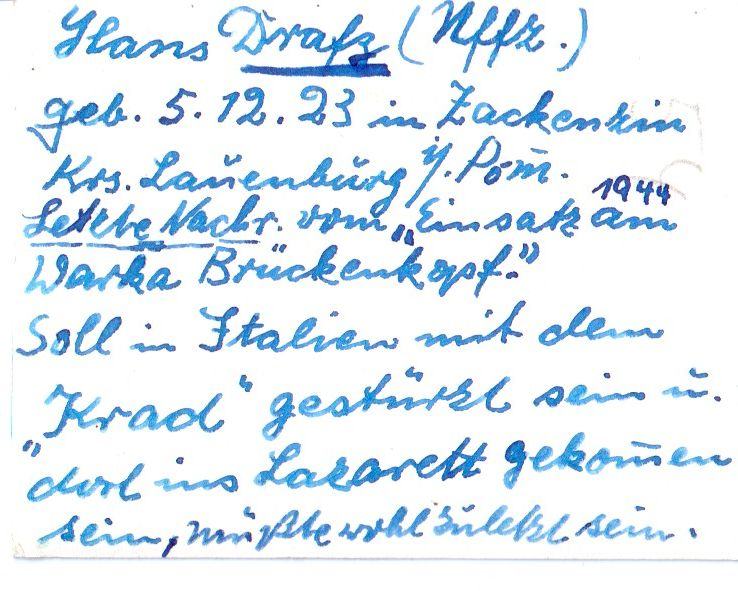 Hans Drafz (Uffz.)
geb. 5.12.23 in Zackenzin
Krs. Lauenburg i/. Pom̄.
Letzte Nachr. vom „Einsatz am 1944
Warka Brückenkopf.“
Soll in Italien mit dem
„Krad“ gestürzt sein u.
dort ins Lazarett gekom̄en
sein, müßte wohl zuletzt sein.